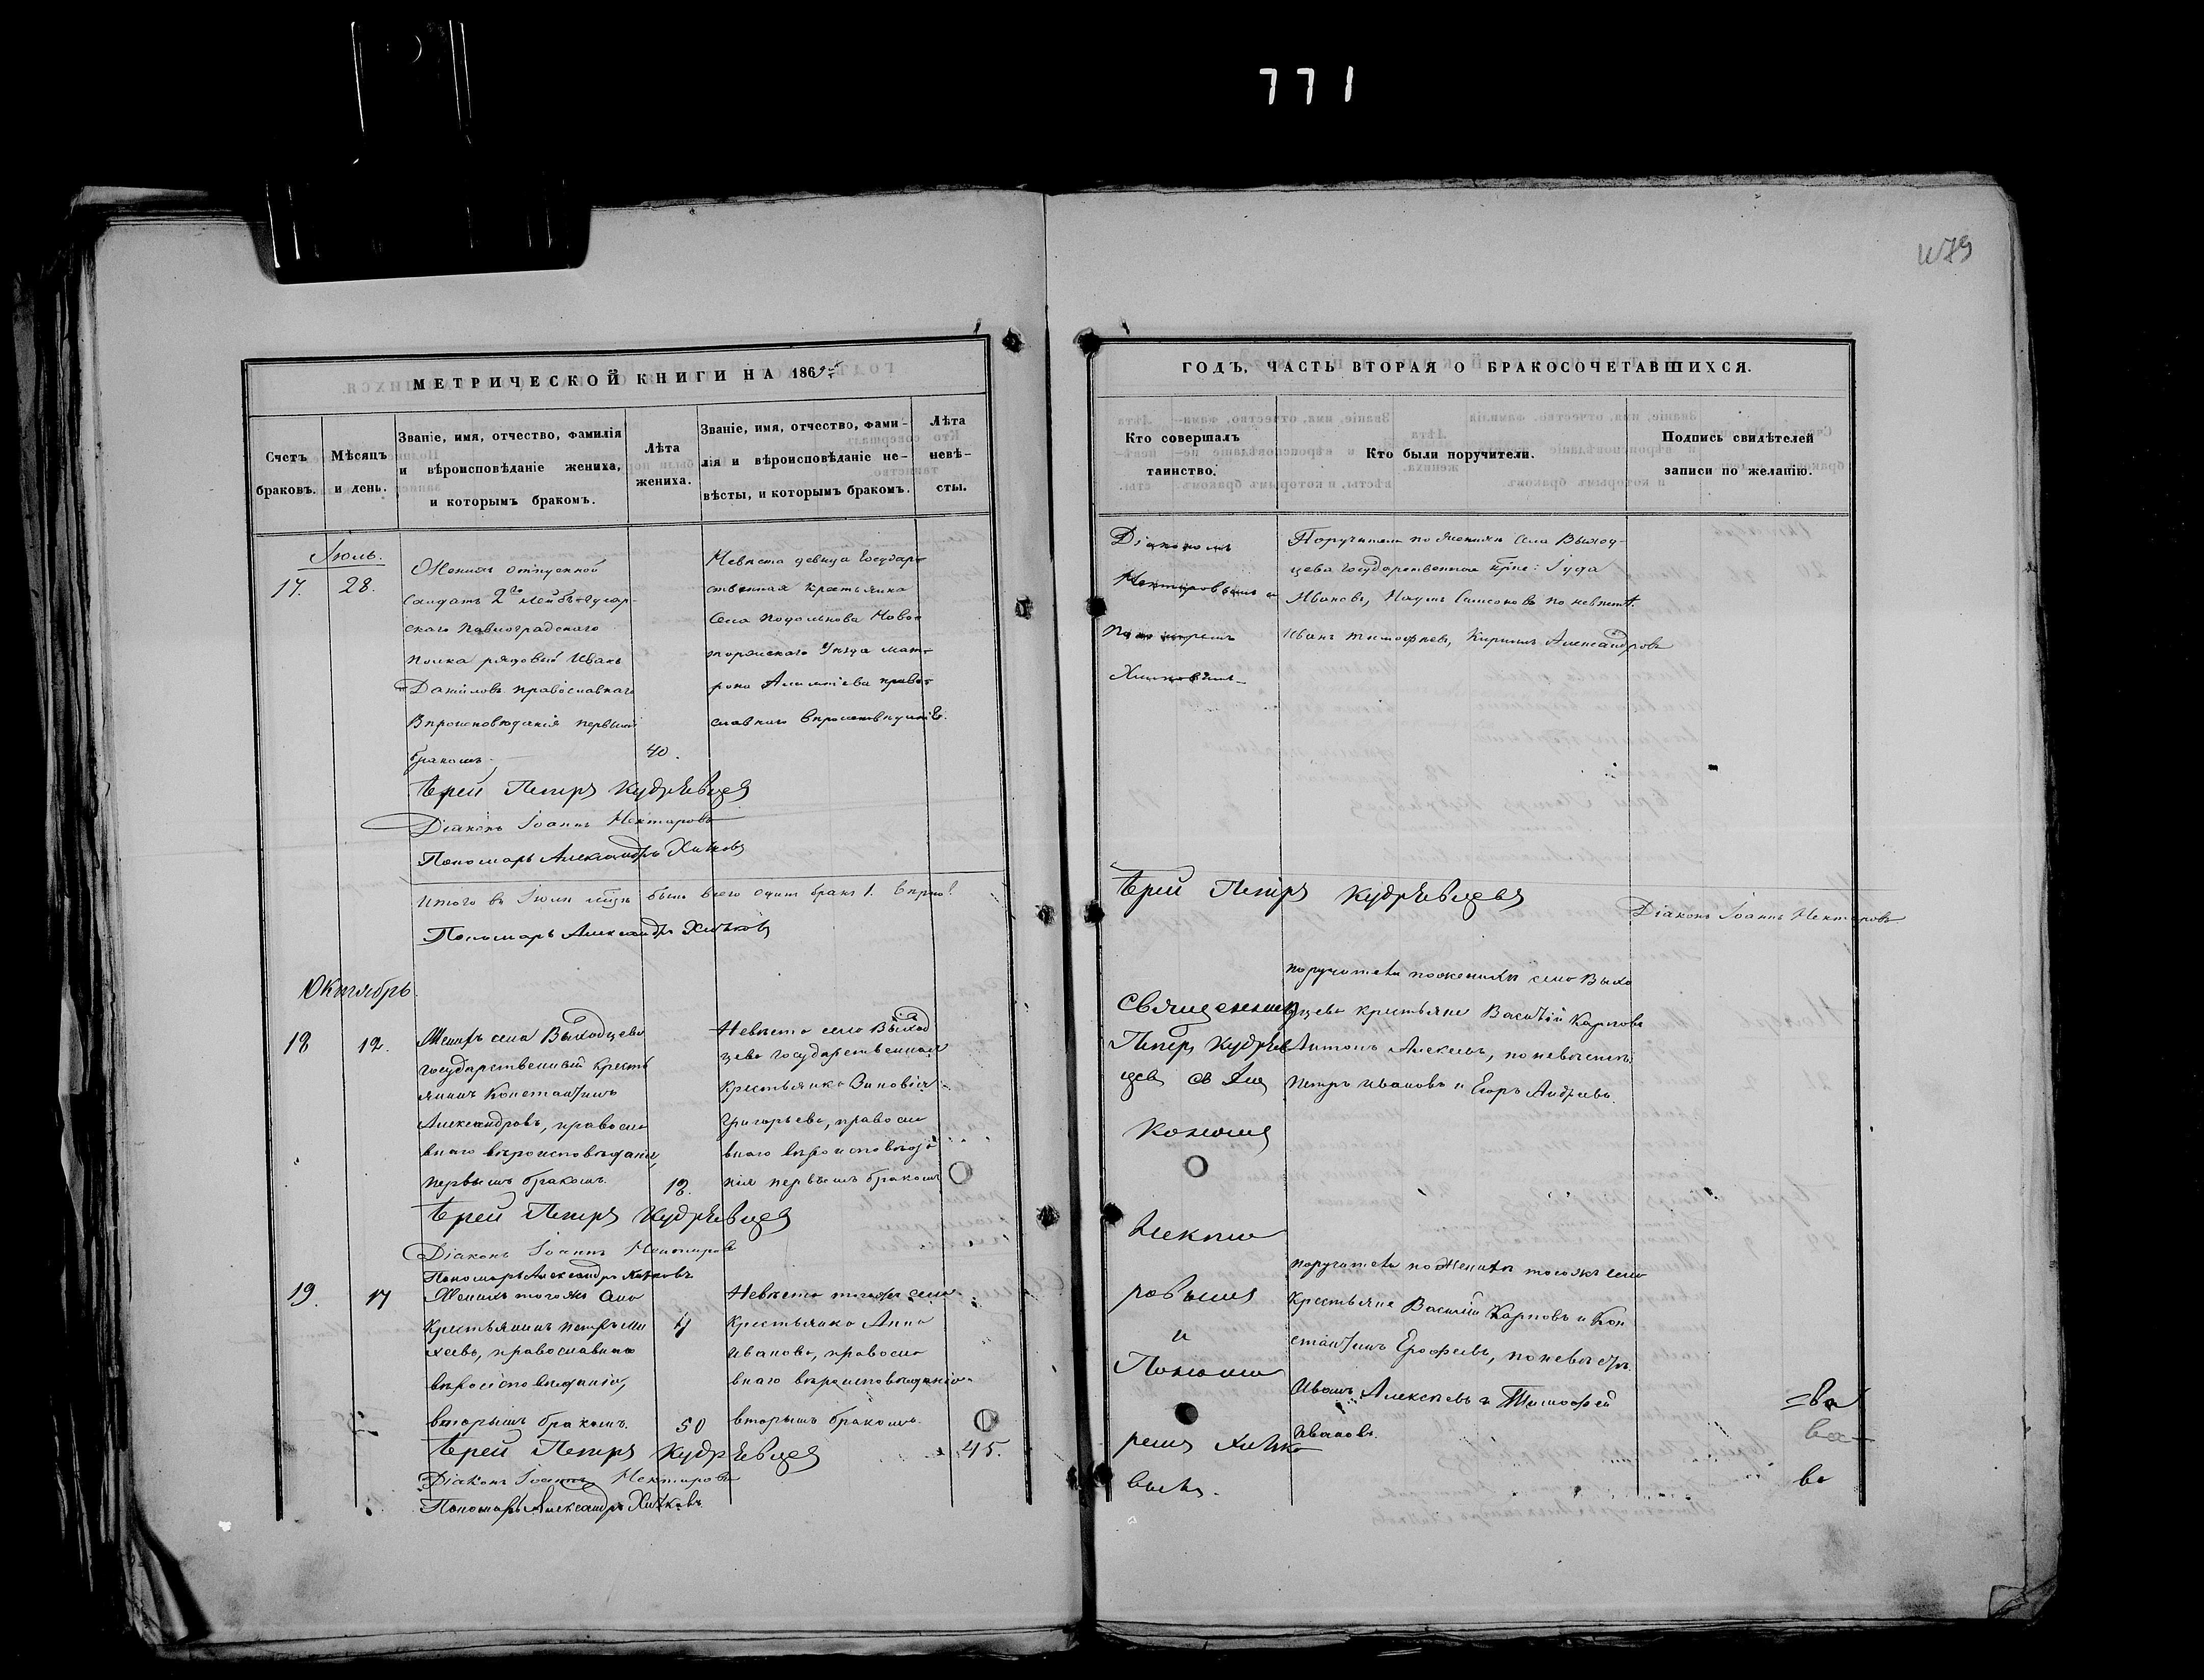 771
МЕТРИЧЕСКОЙ КНИГИ НА 1869
Счетъ браковъ.
Мѣсяцъ и день.
Званіе, имя, отчество, фамилія и вѣроисповѣданіе жениха, и которымъ бракомъ.
Лѣта жениха.
Званіе, имя, отчество, фами-
лія и вѣроисповѣданіе не-
вѣсты, и которымъ бракомъ.
Лѣта невѣ-
сты.
Іюль.
17.
28.
Женихъ отпускной
Солдатъ 2го Лейбъ-Гусар-
скаго Павлоградскаго
полка рядовый Иванъ
Даниловъ православнаго
Вѣроисповѣданія первымъ
бракомъ.
40.
Невѣста девица Государ-
ственная крестьянка
Села
рона православнаго
Іерей Петръ Кудрявцевъ
Діаконъ Іоаннъ Нектаровъ
Пономарь Александръ
Итого въ Іюлѣ было всего одинъ бракъ 1.
Пономарь Александръ
Октябрь.
18
12.
Женихъ села Выходцева
государственный кресть
янинъ Константинъ
Александровъ, правосла
внаго вѣроисповѣданія,
первымъ бракомъ.
18.
Невѣста села Выход
цева государственная
крестьянка Зиновія
Григорьева, правосла
внаго вѣроисповѣда
нія первымъ бракомъ
Іерей Петръ Кудрявцевъ
Діаконъ Іоаннъ Нектаровъ
Пономарь Александръ
19.
17
Женихъ того же села
крестьянинъ Петръ Ми
хеевъ, православнаго
вѣроисповѣданія,
вторымъ бракомъ.
50
Невѣста того же села
крестьянка Анна
Иванова, правосла
внаго вѣроисповѣданія
вторымъ бракомъ.
45.
Іерей Петръ Кудрявцевъ
Діаконъ Іоаннъ Нектаровъ
Пономарь Александръ
ГОДЪ, ЧАСТЬ ВТОРАЯ О БРАКОСОЧЕТАВШИХСЯ.
Кто совершалъ таинство.
Кто были поручители.
Подпись свидѣтелей записи по желанію.
Діакономъ
Нектаровымъ и
Пономаремъ
Поручители по женихѣ села Выход-
цева государственные Іуда
Ивановъ, по невѣстѣ.
Иванъ Тимофѣевъ, Кириллъ Александровъ
Іерей Петръ Кудрявцевъ
Діаконъ Іоаннъ Нектаровъ
Священникъ
Петръ Кудряв
цевъ съ Діа
кономъ
Некта
ровымъ
и
Понома
ремъ
поручители по женихѣ села Выхо
цева крестьяне Василій Карповъ
Антонъ Алексѣевъ, по невѣстѣ
Петръ Ивановъ и Егоръ Андреевъ.
поручители по женихѣ того же села
крестьяне Василій Карповъ и Кон
стантинъ Ерофеевъ, по невѣстѣ
Иванъ Алексѣевъ и Тимофей
Ивановъ.